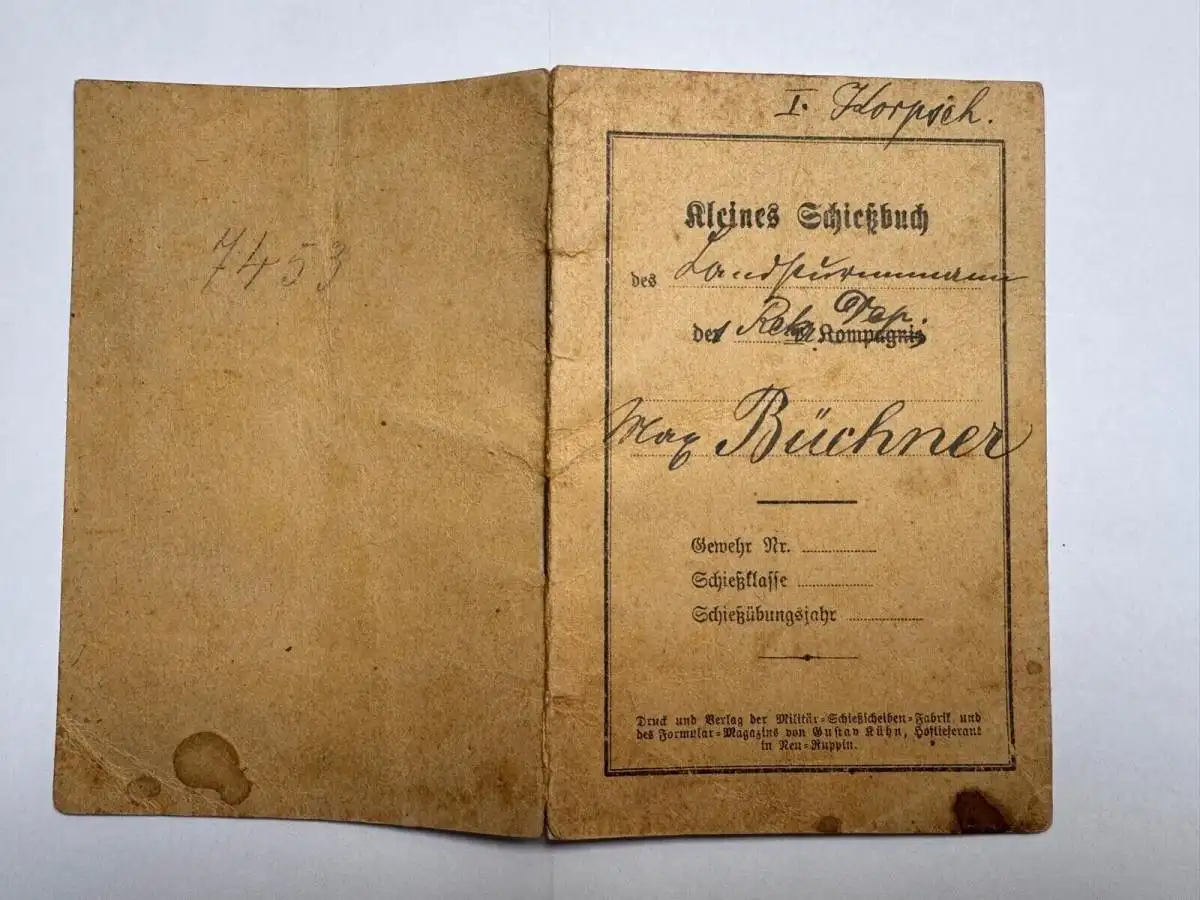 7453
I. Korpsch.
Kleines Schießbuch
des Landsturmmann
des Rek. Dep. Kompagnie
Max Büchner
Gewehr Nr.
Schießklasse
Schießübungsjahr
Druck und Verlag der Militär-Schießscheiben-Fabrik und
des Formular-Magazins von Gustav Kühn, Hoflieferant
in Neu-Ruppin.